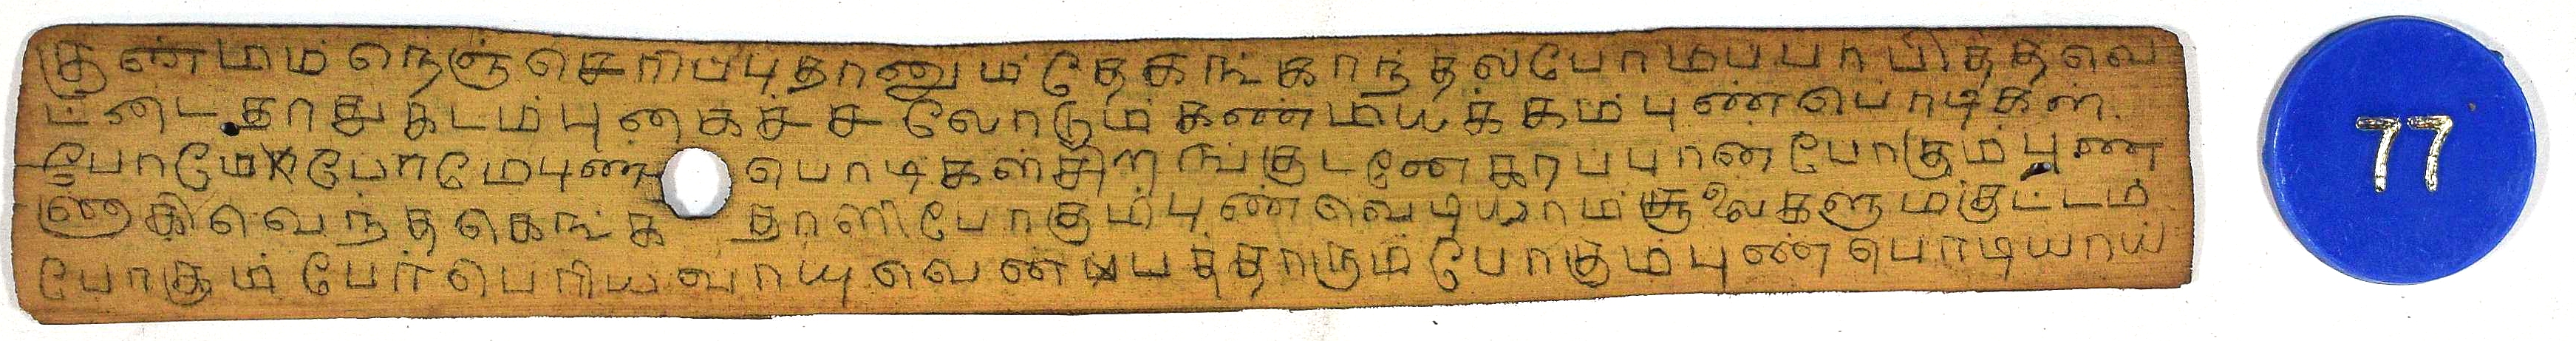 குண்மம் நெஞ்செரிப்புதானும் தேகங்காந்தல்போமப்பா பித்தவெ
ட்டைதாதுகடம்புனகச்சலோடும் கண்மயக்கம் புண்பொடிகள்
போமேபோமேபுண்பொடிகள்சிறங்குடனே கரப்பான போகும் புண
ணகிவெந்தகெங்கதாளிபோகும்புண்வெடியாம் சூலைகளும்குட்டம்
போகும் பேர்பெரியவாயுவெண்பத்தாரும்போகும்புண்பொடியாய்
77